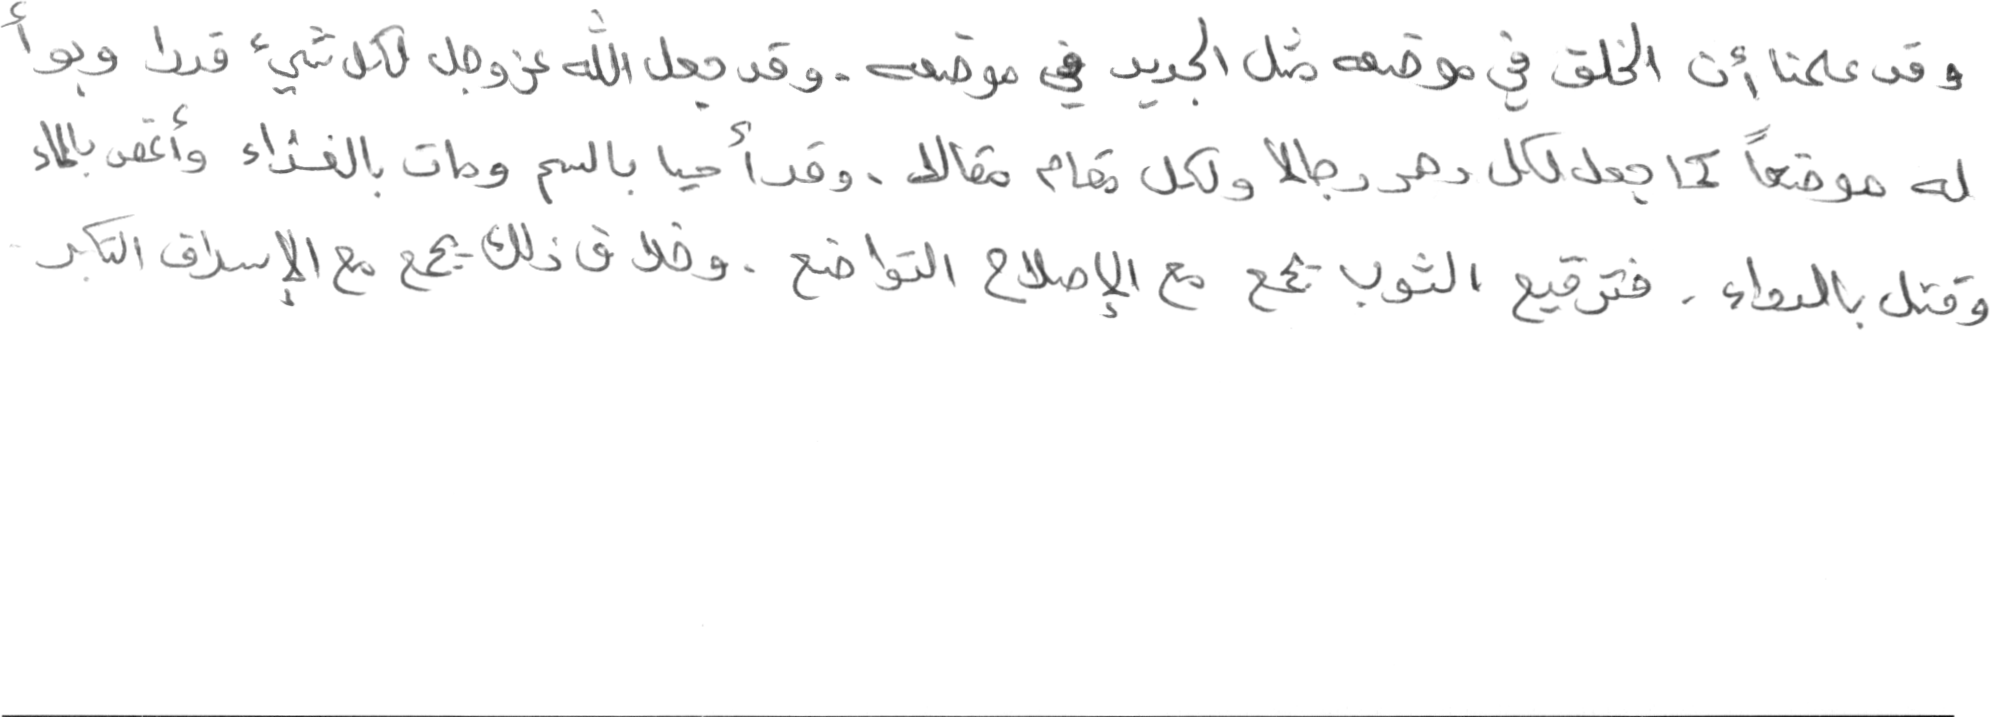 وقد علمنا أن الخلق في موضعه مثل الجديد في موضعه. وقد جعل الله عز وجل لكل شيئ قدرا وبوأ
له موضعاً كما جعل لكل دهر رجالا ولكل مقام مقالا. وقد أحيا بالسم ومات بالغذاء وأغص بالماء
وقتل بالدواء. فترقيع الثوب يجمع مع الإصلاح التواضع. وخلاف ذلك يجمع مع الإسراف التكبر